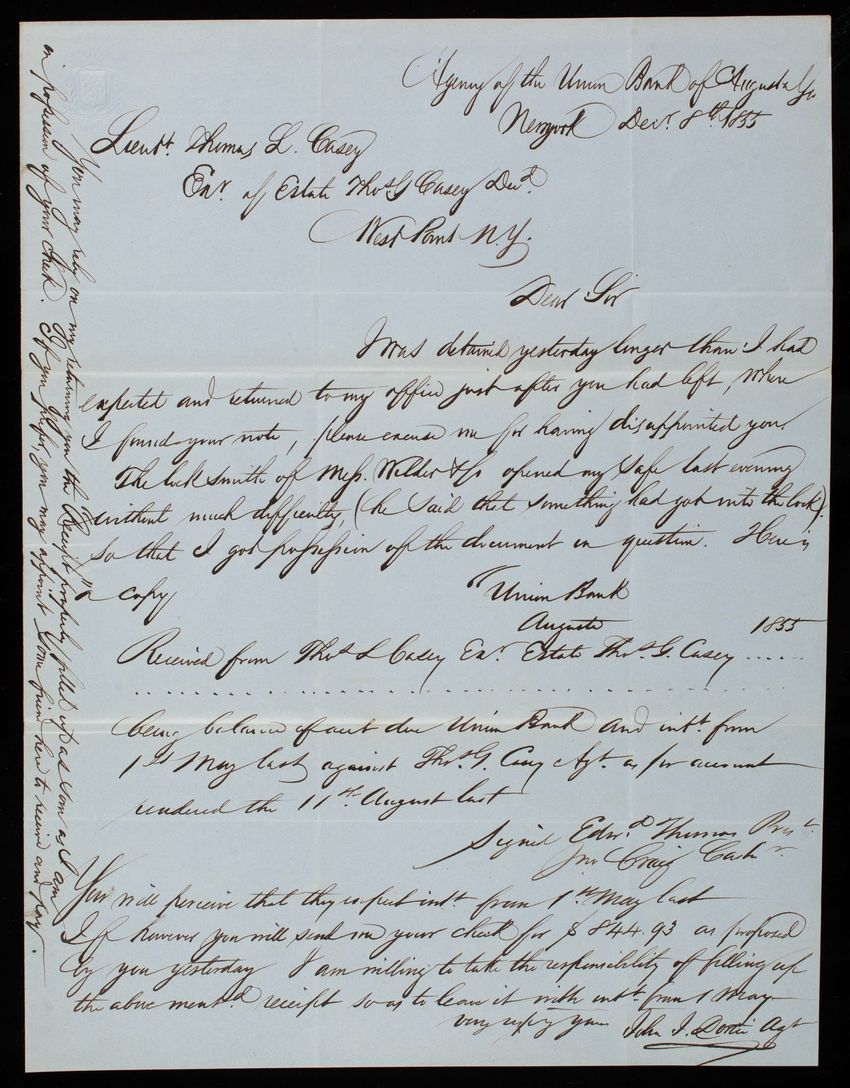 Agency of the Union Bank of Augusta Ga
New york Decr. 8th. 1855
Lieut. Thomas L. Casey
Exr. of Estate Thos. G Casey Decd.
West Point N.Y.
Dear Sir
I was detained yesterday longer than I had
expected and returned to my office just after you had left, when
I found your note, please excuse me for having disappointed you
The lock smith of Mess. Wilder & Co opened my safe last evening
without much difficulty, (he said that something had got into the lock).
so that I got possession of the document in question. Here is
a copy
"Union Bank
Augusta 1855
Received from Thos L Casey Exr. Estate Thos. G. Casey ......
being balance of acct due Union Bank and intt. from
1st May last against Thos. G. Casey Agt. as per account
rendered the 11th. August last"
Signed Edwd. Thomas Prest.
Jno Craig Cashr.
You will perceive that they expect intt. from 1st. May last
If however you will send me your check for $844.93 as proposed
by you yesterday I am willing to take the responsibility of filling up
the above mentd. receipt so as to leave it with intt. from 1 May
very respy yours John J. Agt
You may rely on my returning you the Receipt properly filled up as soon as I am
in possession of your check. If you prefer you may appoint some friend here to receive and pay.